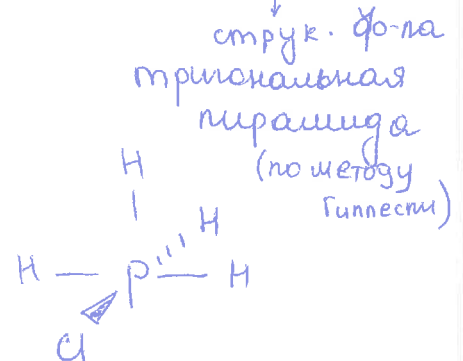 струк. ф-ла
тригональная
пирамида
(по методу
Гиппеспи)
H
H
H — P — H
Cl